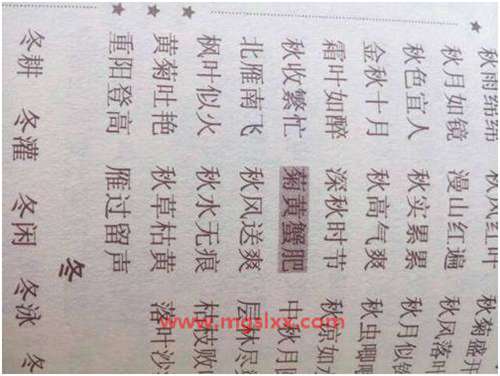 秋雨绵绵 秋风红叶 秋菊盛
秋月如镜 漫山红遍 秋风落叶
秋色宜人 秋实累累 秋月似
金秋十月 秋高气爽 秋虫唧
霜叶如醉 深秋时节 秋凉如
秋收繁忙 菊黄蟹肥 中秋月
北雁南飞 秋风送爽 层林尽
枫叶似火 秋水无痕 枯枝败
黄菊吐艳 秋草枯黄 落叶沙
重阳登高 雁过留声
冬
冬耕 冬灌 冬闲 冬泳 冬
www.mgslxx.com